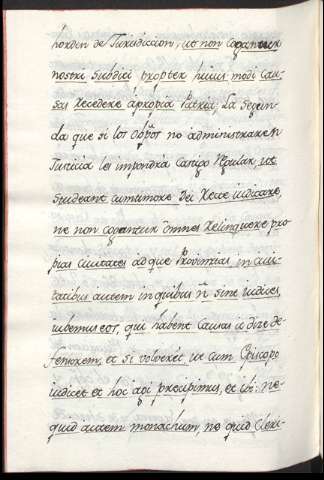 horden de Jurisdiccion, ut non cogantur
nostri Subdici propter huius modi Cau-
sas recedere á propria Patria; La Segun-
da que si los Obpos no administraren
Justicia les impondrá Castigo Regular, ut
Studeant cum timore Dei recte iudicare,
ne non cogantur omnes relinquere pro
pias Civitates ad que Provintias in civi-
tatibus autem in quibus ñ sint iudices,
iubemus eos, qui habent Causas adire de-
fensorem, et si voluerit ut cum Episcopo
iudicet et hoc agi precipimus, et ibi: ne-
quid autem monachum, ne quid Cleri-